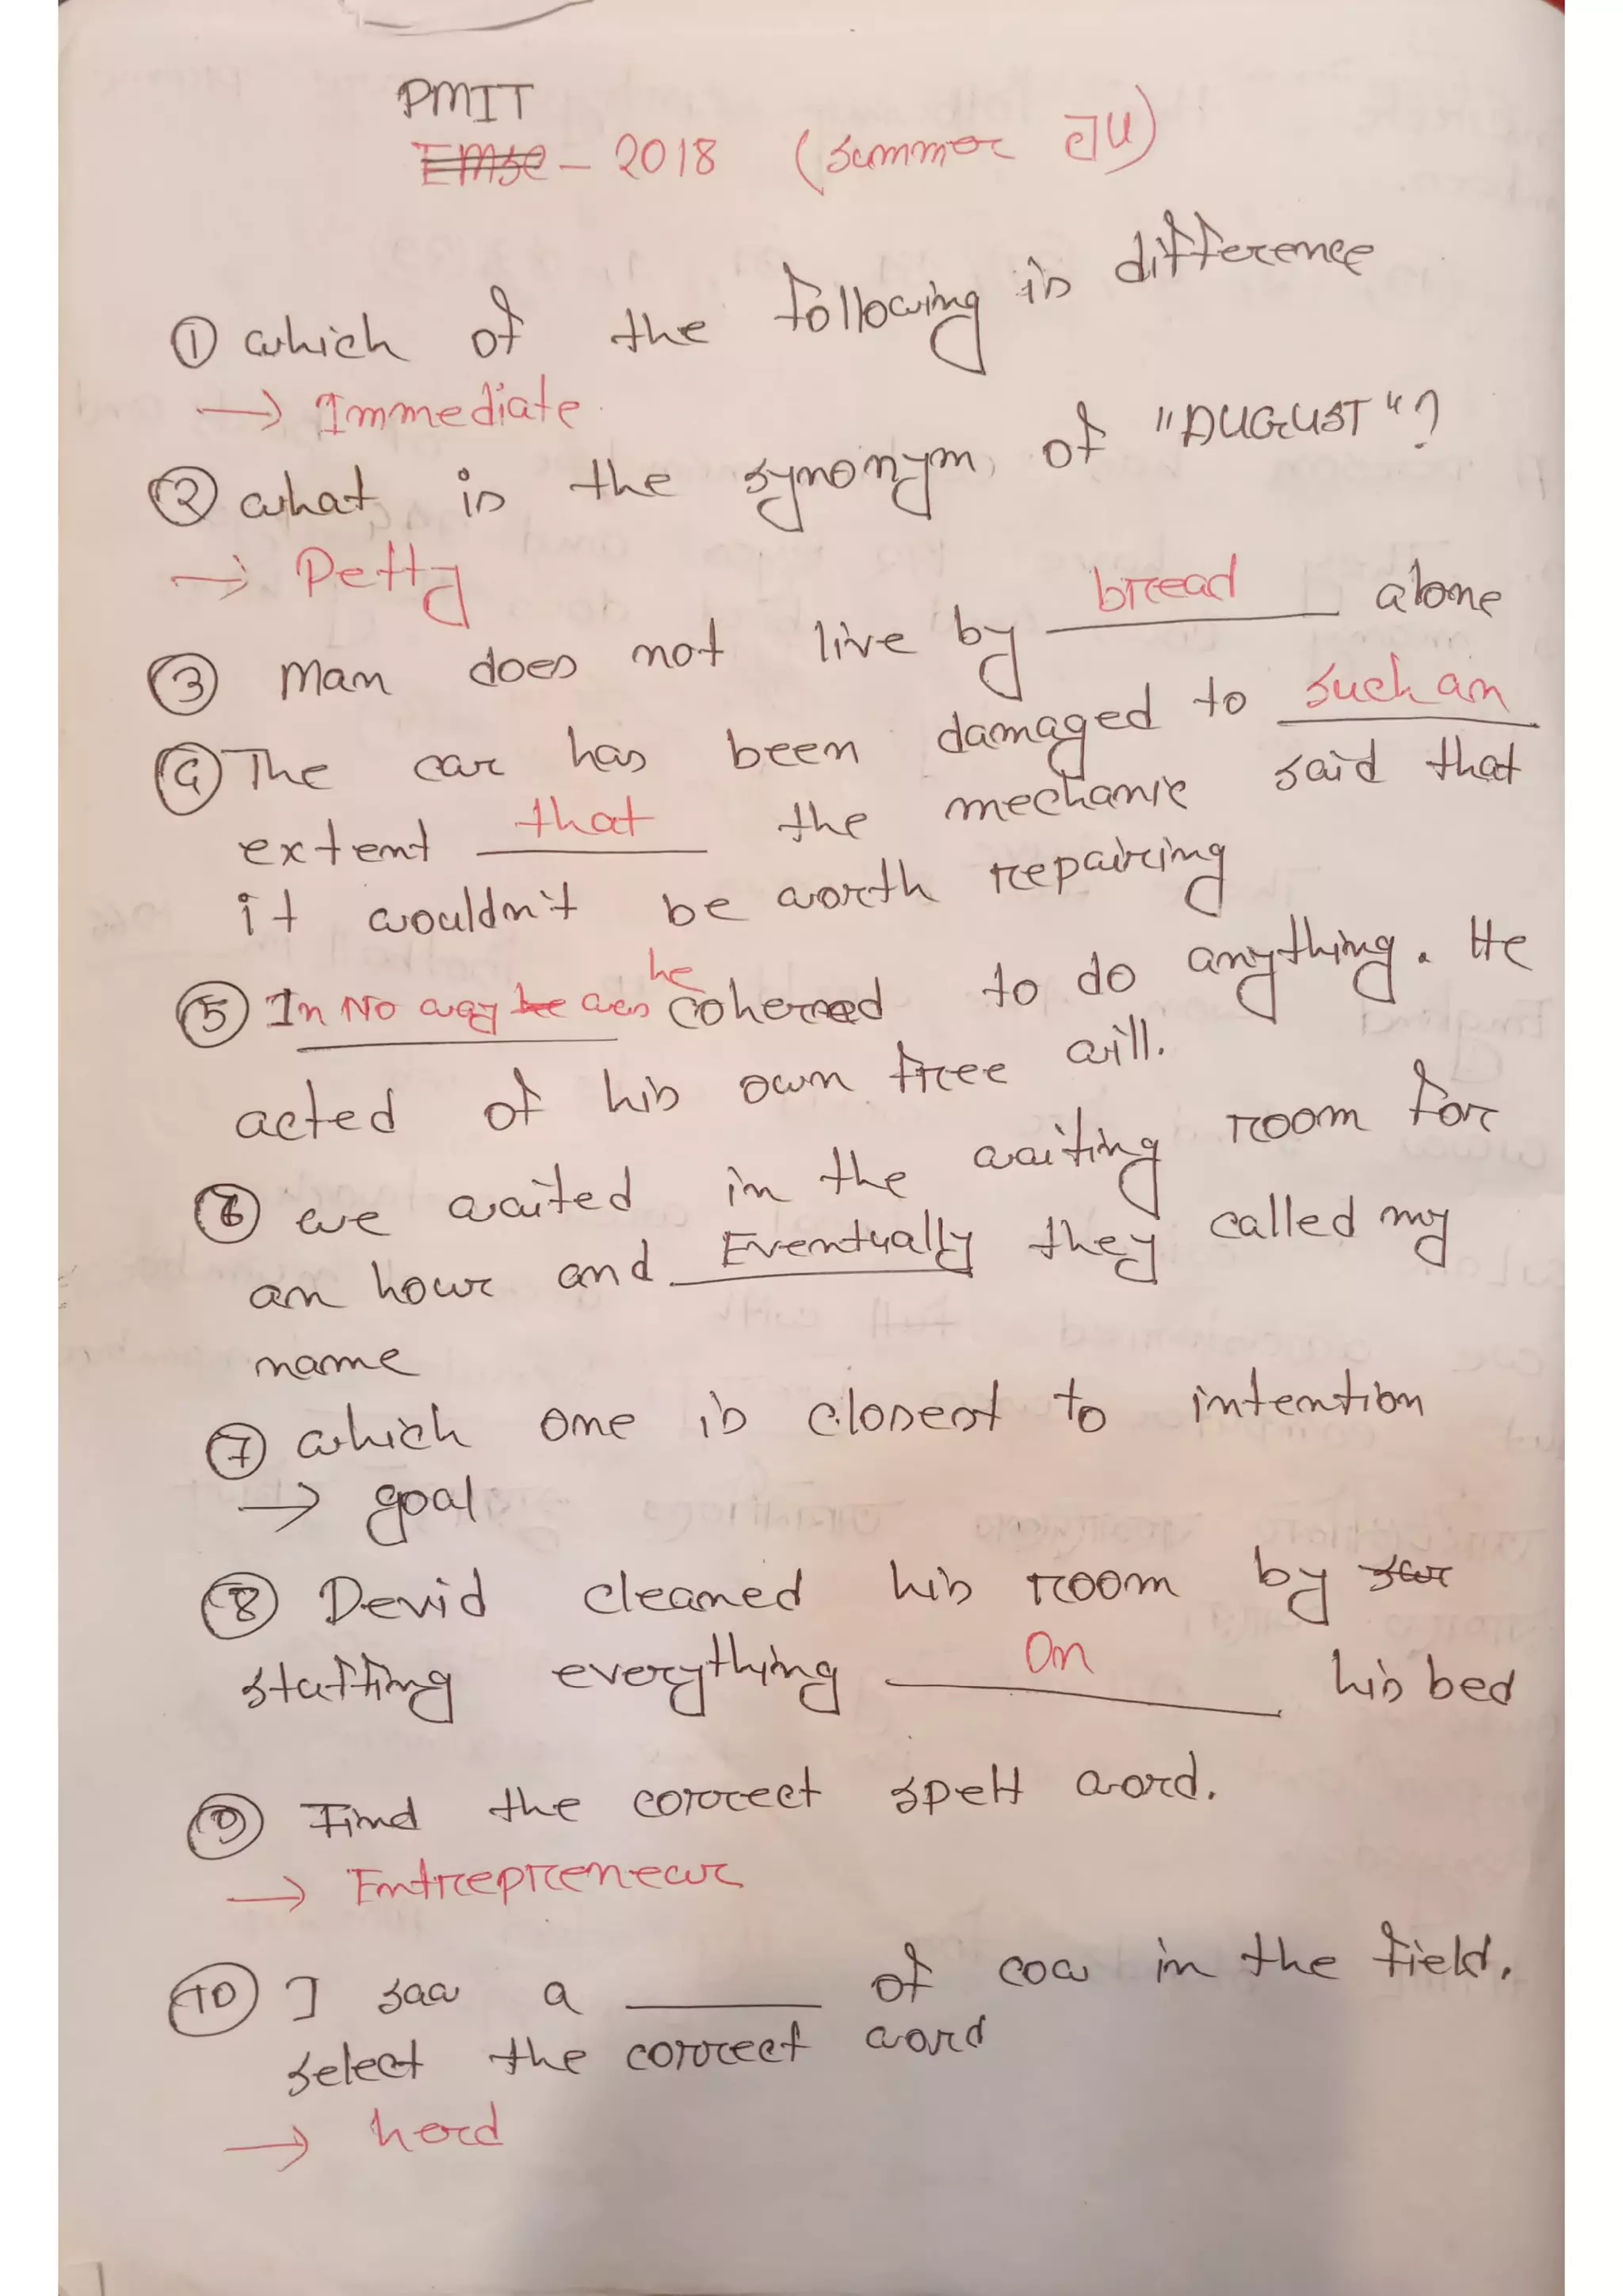 PMIT
EMSC - 2018 (summer JU)
① which of the following is difference
→ Immediate
② what is the synonym of "AUGUST"?
→ Petty
③ Man does not live by bread alone
④ The car has been damaged to such an
extent that the mechanic said that
it wouldn't be worth repairing
⑤ In No way he was he coherced to do anything. He
acted of his own free will.
⑥ we waited in the waiting room for
an hour and Eventually they called my
name
⑦ which one is closest to intention
→ goal
⑧ Devid cleaned his room by
staffing everything On his bed
⑨ Find the correct spelt word.
→ Entrepreneur
⑩ I saw a ______ of cow in the field.
select the correct word
→ herd